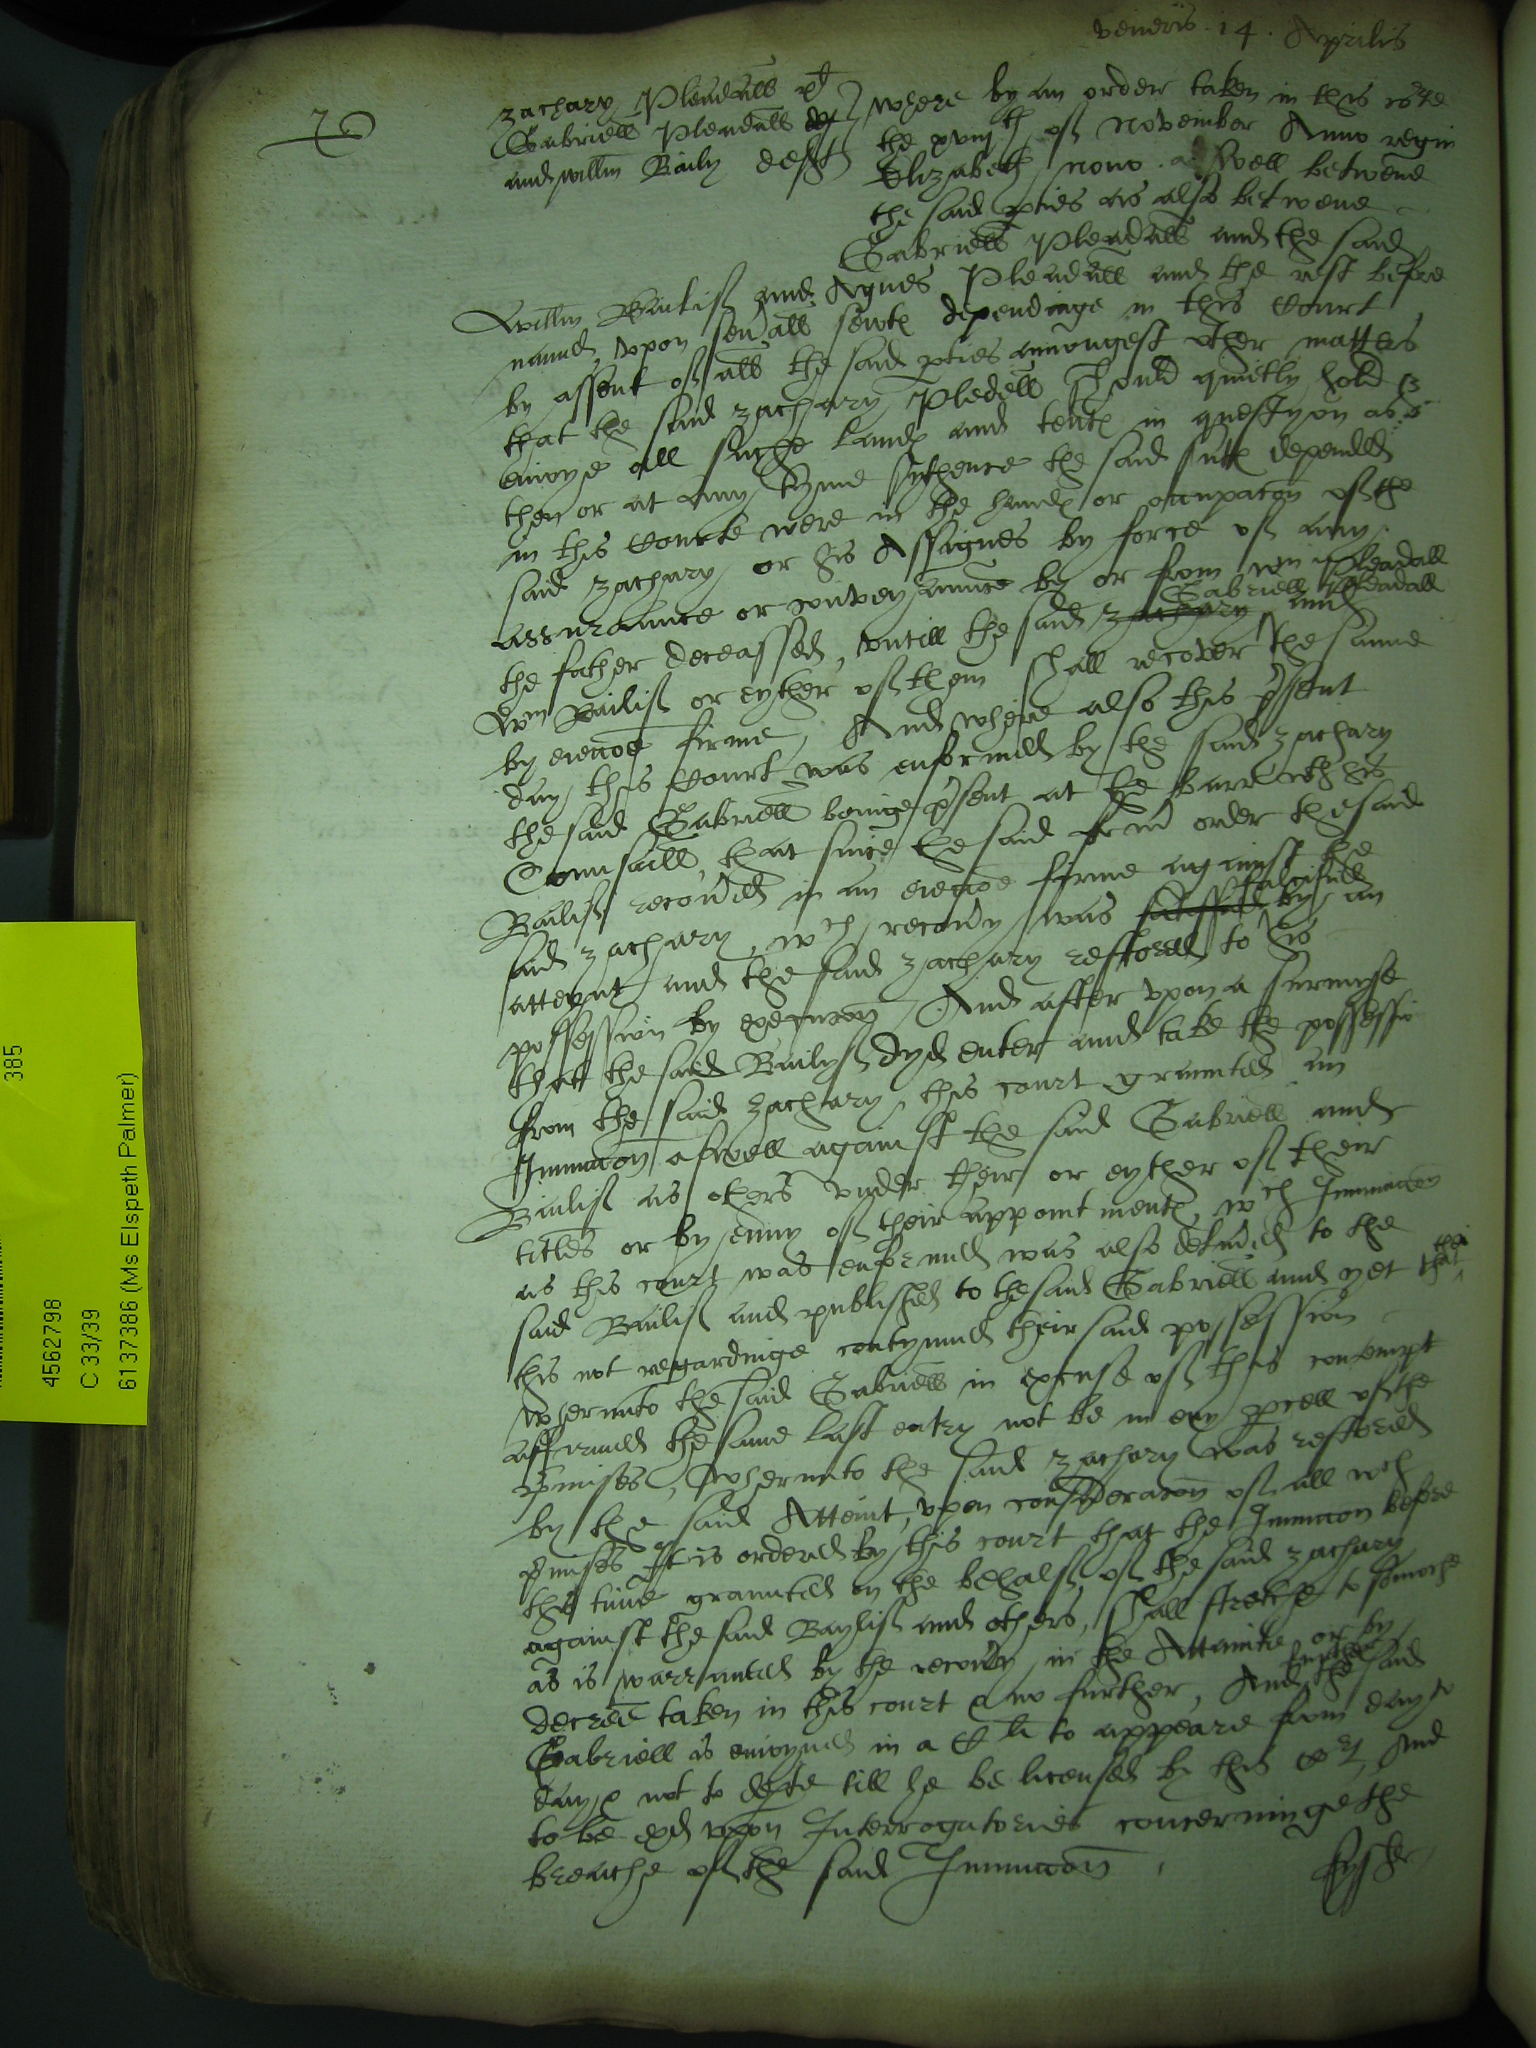 veneris 14 Aprilis
zachary Pleadall pl
Gabriell Pleadall
and willm Baily deft
where by an order taken in this corte
the xviijth of November Anno regin
Elizabeth nono aswell betwene
the said pties as also betwene
Gabriell Pleadall and the said
willm Bailif and Agnes Pleadall and the rest before
named upon seuall sewte dependinge in this Court
by assent of all the said pties amongest other matters
that the said zachary Pledell should quietly hold &
enioye all suche lande and tente in questyon as
then or at any tyme sythence the said sute depended
in this Courte were in the hande or occupacon of the
said zachary or his Assignes by force of any
assuraunce or conveyaunce by or from wm Pleadall
the father deceassed, untill the said zachary Gabriell Pleadall and
wm Bailif or eyther of them shall recover the same
by eieccoe firme, And where also this psent
day this Court was enformed by the said zachary
the said Gabriell beinge psent at the barr wth his
Counsaill, that since the said order the said
Bailif recoued in an eieccoe firme against the
said zachary, wch recouy was falcifiell by an
atteynt and the said zachary restored to his
possession by execucon And after upon a surmyse
that the said Bailyf dyd enter and take the possessio
from the said zachary, this court graunted an
Iniuncon aswell against the said Gabriell and
Bailif as others under their or eyther of their
titles or by enny of their appointmente, wch Iniuncon
as this court was enformed was also deliued to the
said Bailif and published to the said Gabriell and yet that thei
this not regardinge contynued their said possession
wherunto the said Gabriell in excuse of this contempt
affirmed the same last entry not be in eny pcell of the
pmises, wherunto the said zachary was restored
by the said Atteint, upon consideracon of all wch
pmises It is ordered by this court that the Iniuncon before
this time graunted on the behalf of the said zachary
against the said Baylif and others, shall stretche to somoche
as is warraunted by the recouy in the Attainte or by
decree taken in this court & no further, And further the said
Gabriell is enioyned in a C li to appeare from day to
day & not to depte till he be licensed by this cort, And
to be exd upon Interrogatories concerninge the
breache of the said Iniuncon
385
4562798
C 33/39
6137386 (Ms Elspeth Palmer)